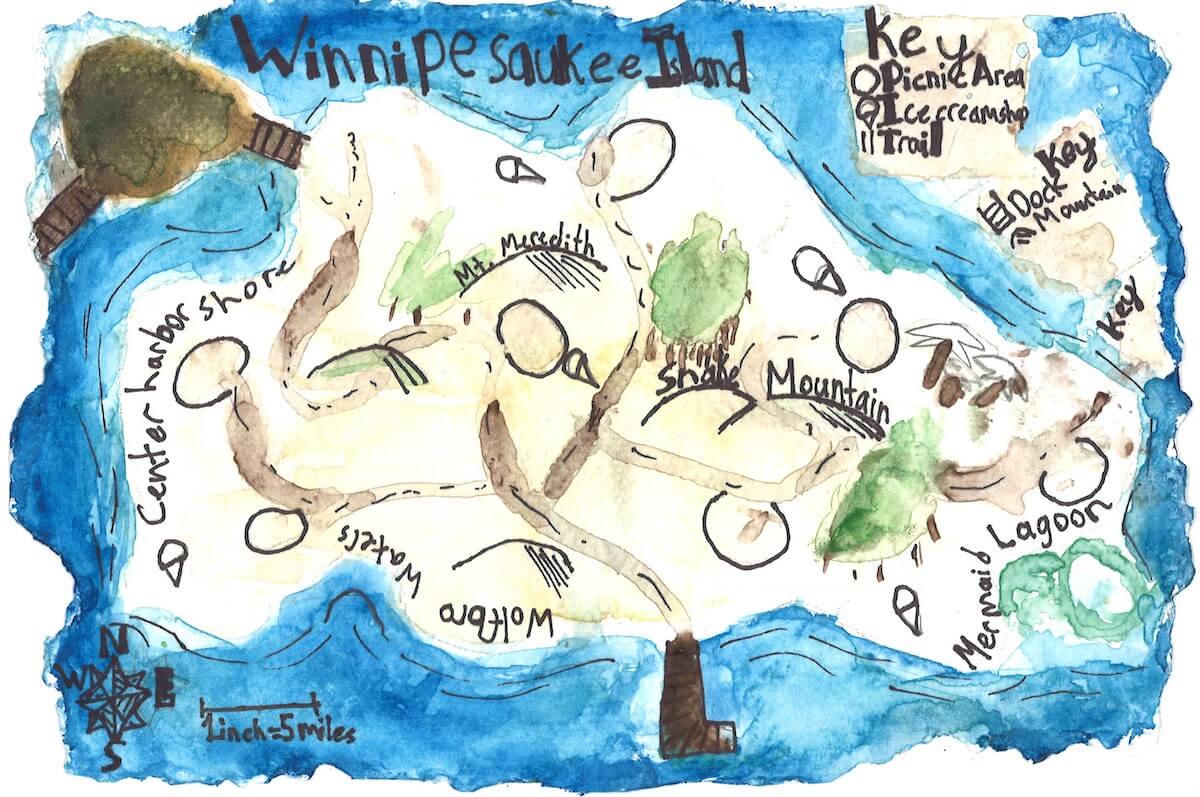 Winnipesaukee Island
Key
Picnic Area
Icecreamshop
Trail
Key
Dock
Mountain
Key
Center harbor shore
Mt. Meredith
Snake Mountain
Wolfbro
Waters
Mermaid Lagoon
N
W E
S
1inch=5miles